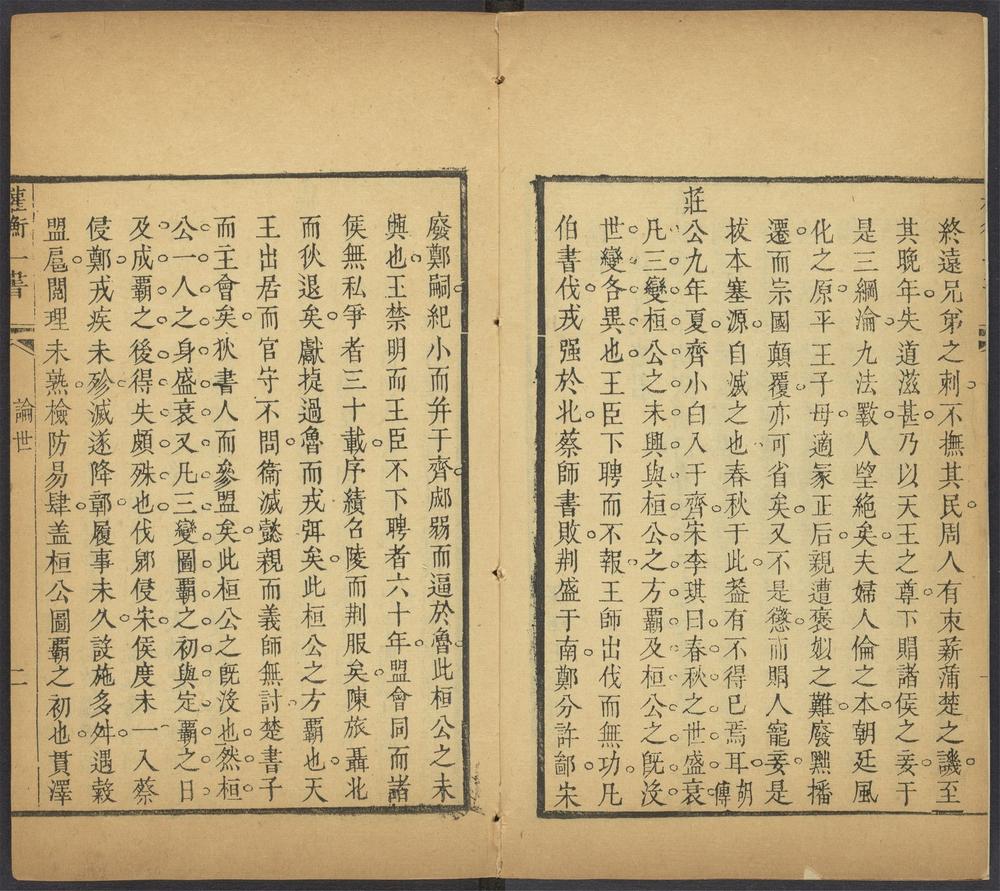 終遠兄弟之刺不撫其民周人有束薪蒲楚之譏至
其晚年失道滋甚乃以天王之尊下賵諸侯之妾于
是三綱淪九法斁人望絶矣夫婦人倫之本朝廷風
化之原平王子母適冢正后親遭褒姒之難廢黜播
遷而宗國顛覆亦可省矣又不是懲而賵人寵妾是
拔本塞源自滅之也春秋于此葢有不得已焉耳胡傳
莊公九年夏齊小白入于齊宋李琪曰春秋之世盛衰
凡三變桓公之未興與桓公之方覇及桓公之旣沒
世變各異也王臣下聘而不報王師出伐而無功凡
伯書伐戎强於北蔡師書敗荆盛于南鄭分許鄙宋
廢鄭嗣紀小而幷于齊郕弱而逼於魯此桓公之未
興也王禁明而王臣不下聘者六十年盟會同而諸
侯無私爭者三十載序績召陵而荆服矣陳旅聶北
而狄退矣獻捷過魯而戎弭矣此桓公之方覇也天
王出居而官守不問衞滅懿親而義師無討楚書子
而主會矣狄書人而參盟矣此桓公之旣沒也然桓
公一人之身盛衰又凡三變圖覇之初與定覇之日
及成覇之後得失頗殊也伐郳侵宋侯度未一入蔡
侵鄭戎疾未殄滅遂降鄣履事未久設施多舛遇穀
盟扈閱理未熟檢防易肆盖桓公圖覇之初也貫澤
權衡一書
論世
二